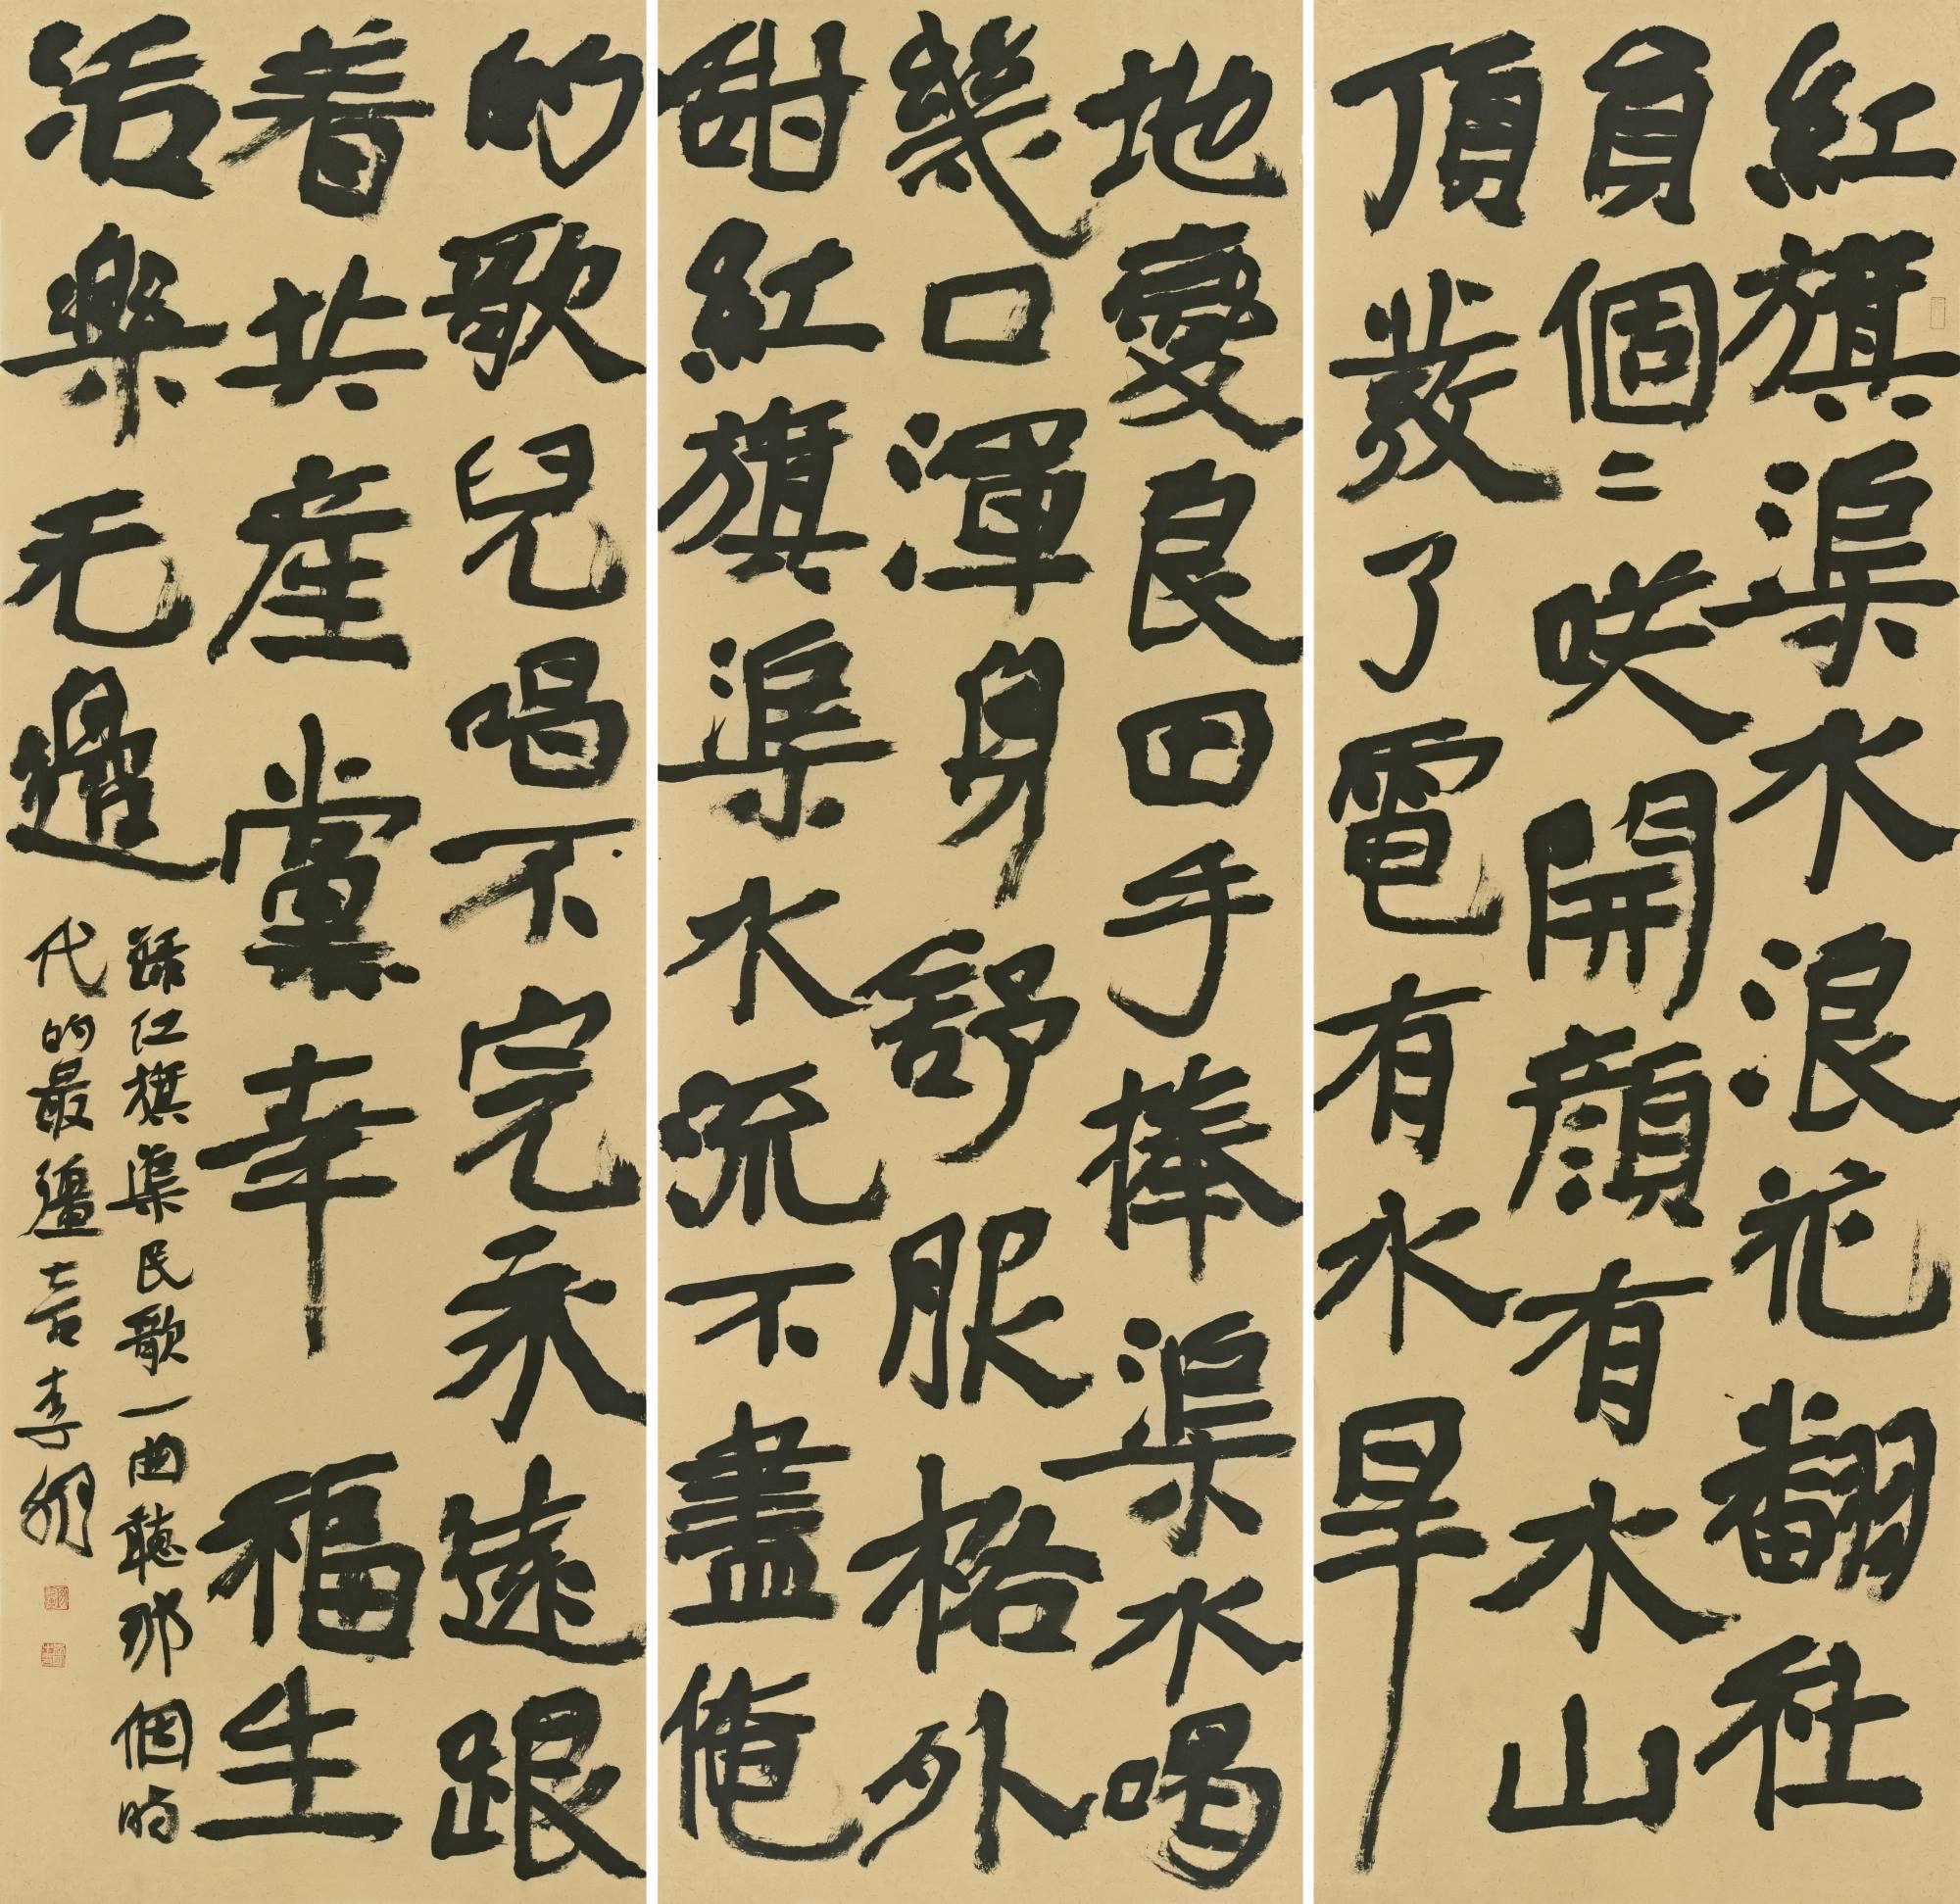 紅旗渠水浪花翻社
員個二咲開顔有水山
頂發了電有水旱
地變良田手捧渠水喝
幾口渾身舒服格外
甜紅旗渠水流不盡俺
的歌兒喝不完永遠跟
着共産黨幸福生
活樂无邊
錄红旗渠民歌一曲聽那個時
代的最彊音李明